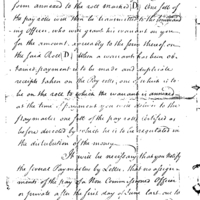 form annexed to the roll marked D. One full of
the pay rolls will then be transmitted to the
my Officer, who will grant his warrant on you
for the amount, agreeably to the form thereof on
the said Roll. When a warrant has been ob-
tained payment is to be made and duplicate
receipts taken on the Pay rolls, one of which is to
be on the roll to which the warrant is annexed
at the time of payment you will deliver to the
Paymaster one full of the pay rolls certified as
before directed by which he is to be regulated in
the distribution of the money.
It will be necessary that you notify
the several Paymasters by Letter, that no assign-
ments of the pay of a Non Commissioned Officer
or private after the first day of June last are to